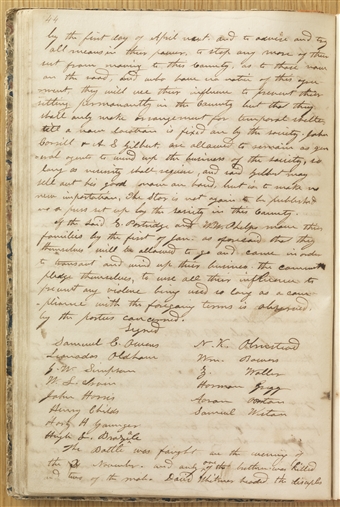 44
by the first day of April next. and to advise and try
all means in their power, to stop any more of their
sect from moving to this County, as to those now
on the road, and who have no notice of this agree
ment, they will use their influence to prevent their
settling permanently in the County but that they
shall only make arrangement for temporal shelter
till a new location is fixed on by the society. John
Corrill & A S Gilbert, are allowed to remain as gen
eral agents to wind up the business of the society, so
long as necessity shall require, and said Gilbert may
sell out his goods now on hand but is to make no
new importation, The Star is not again to be published
nor a press set up by the society in this County.
If the said E Partridge and W W Phelps move their
families by the first of Jan. as aforesaid that they
themselves will be allowed to go and come in order
to transact and wind up their business. the committee
pledge themselves, to use all their influence to
prevent any violence being used so long as a com
pliance with the foregoing terms is observed
by the parties concerned.
Signed
Samuel C. Owens N. K. Olmstead
Leonidas Oldham Wm. Bowers
G. W. Simpson Z. Waller
W. L. Irwin Harman Gregg
John Harris Aaron Overton
Henry Childs Samuel Weston
Harvy H
Hugh L.
The Battle was fought on the evening of
the November. and only one of the brethren was killed
and two of the mob. David Whitmer headed the disciples